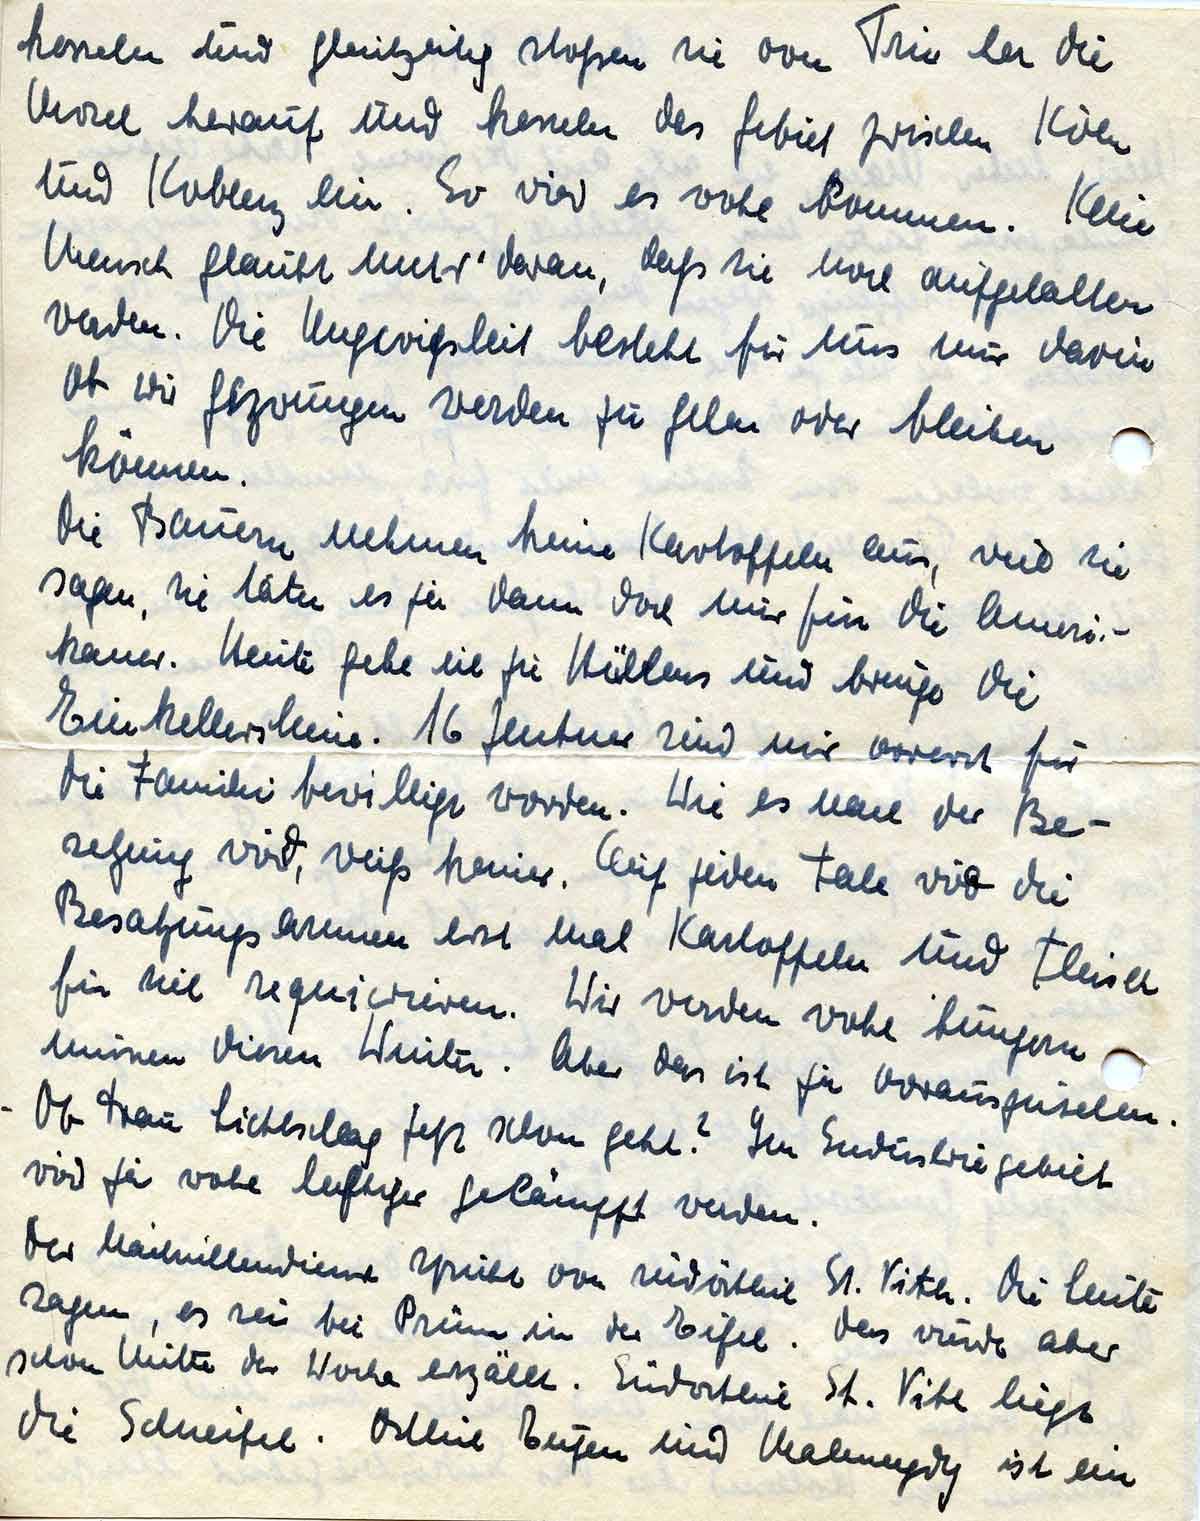 kesseln und gleichzeitig stoßen sie von Trier her die
Mosel herauf und kesseln das Gebiet zwischen Köln
und Koblenz ein. So wird es wohl kommen. Kein
Mensch glaubt mehr daran, daß sie noch aufgehalten
werden. Die Ungewißheit besteht für uns nur darin
ob wir gezwungen werden zu gehen oder bleiben
können.
Die Bauern nehmen keine Kartoffeln aus, weil sie
sagen, sie täten es ja dann doch nur für die Ameri-
kaner. Heute gehe ich zu Müllers und bringe die
Einkellerscheine. 16 Zentner sind mir vorerst für
die Familie bewilligt worden. Wie es nach der Be-
setzung wird, weiß keiner. Auf jeden Fall wird die
Besatzungsarmee erst mal Kartoffeln und Fleisch
für sich requirieren. Wir werden wohl hungern
müssen diesen Winter. Aber das ist ja vorauszusehen.
- Ob Frau Lichtschlag jetzt schon geht? Im Industriegebiet
wird ja wohl heftiger gekämpft werden.
Der Nachrichtendienst spricht von südöstlich St. Vith. Die Leute
sagen, es sei bei Prüm in der Eifel. Das wurde aber
schon Mitte der Woche erzählt. Südostlich St. Vith liegt
die Schneifel. Östlich Eupen und Malmedy ist ein